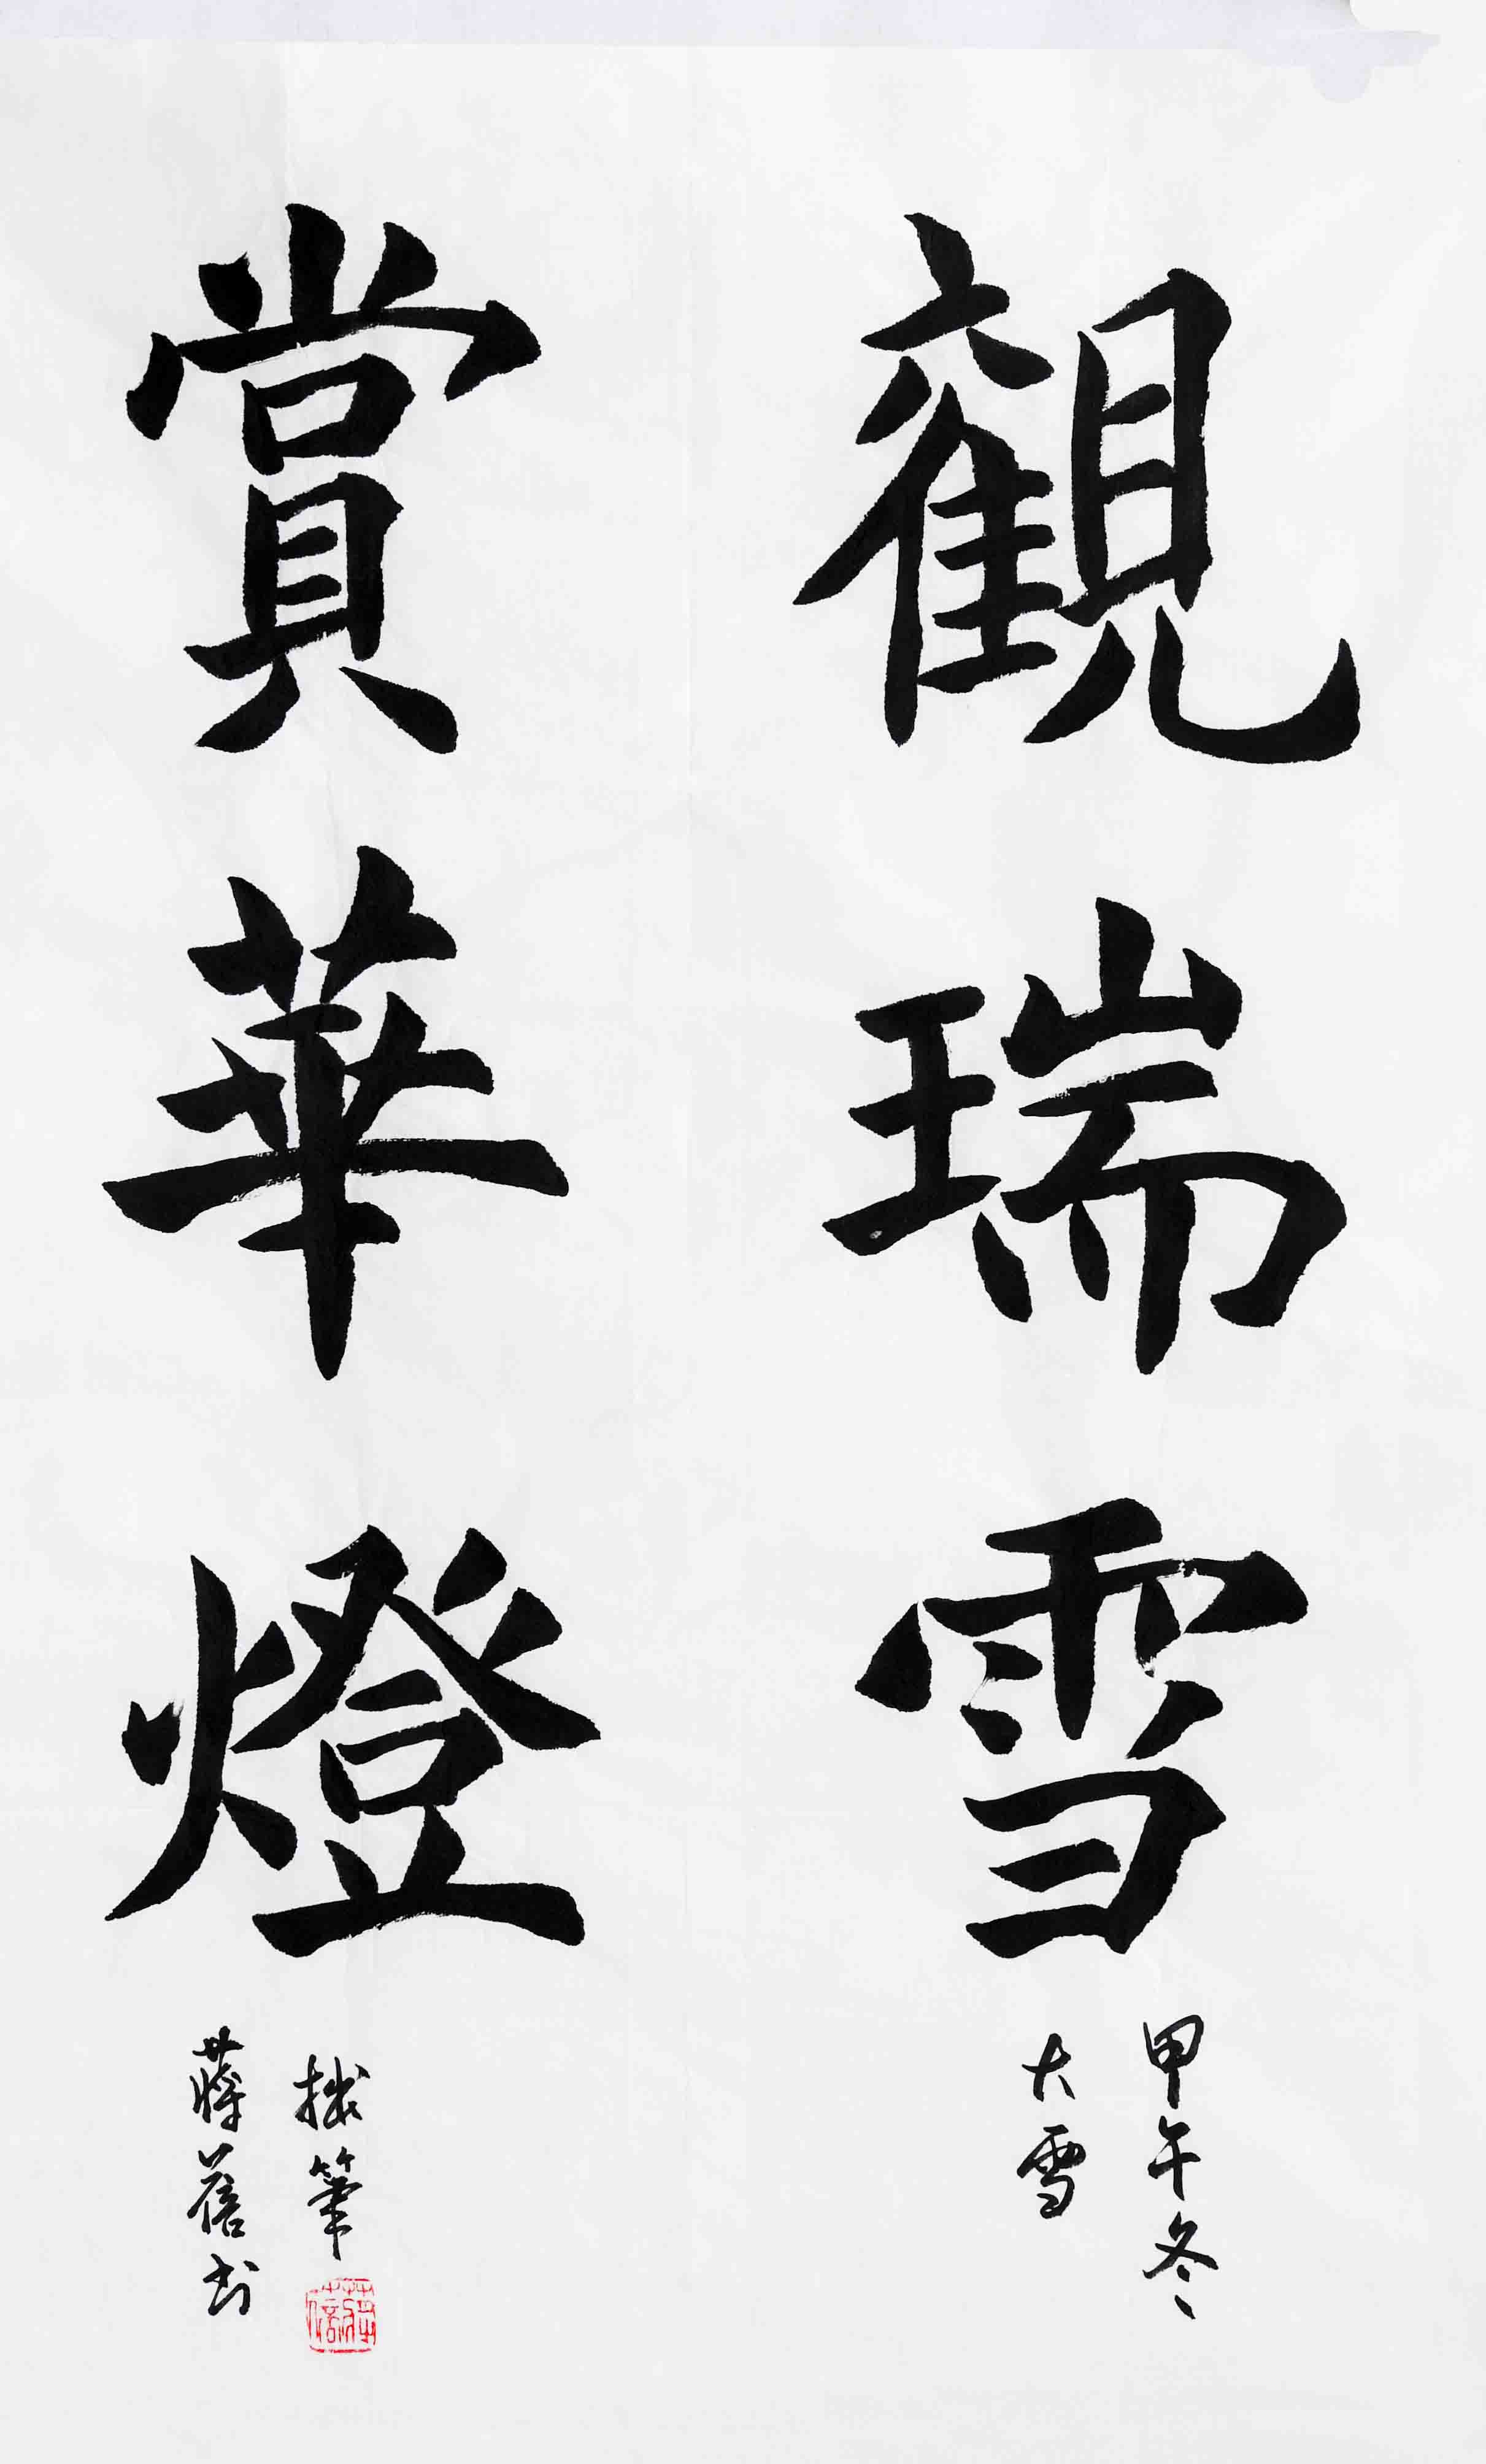 觀瑞雪
甲午冬
大雪
賞華燈
拙筆
蔣蓓书